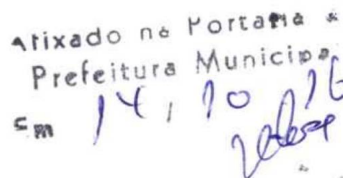 Afixado na Portaria
Prefeitura Municipa
Em 14, 10 16